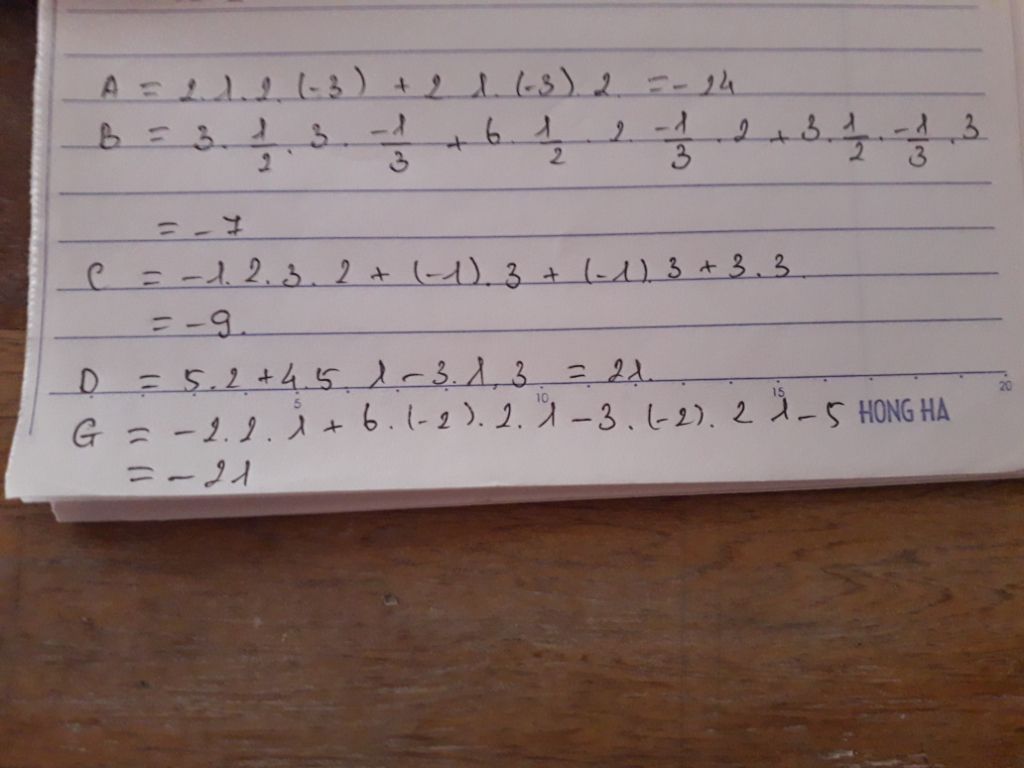 A = 2.1.2.(-3) + 2 1.(-3).2. = -24
B = 3. 1/2. 3. -1/3 + 6. 1/2 . 2. -1/3 .2 + 3. 1/2 . -1/3 . 3
= -7
C = -1.2.3.2 + (-1).3 + (-1).3 + 3.3.
= -9.
D = 5.2 + 4.5. 1 - 3.1.3 = 21.
5 10 15 20
G = -2.2.1 + 6.(-2).2.1 - 3.(-2).2 1 - 5 HONG HA
= -21